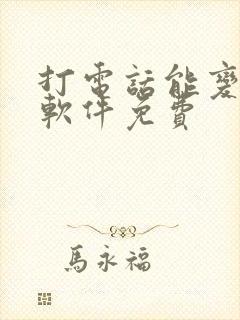 打電話能變
軟件免費
馬永福